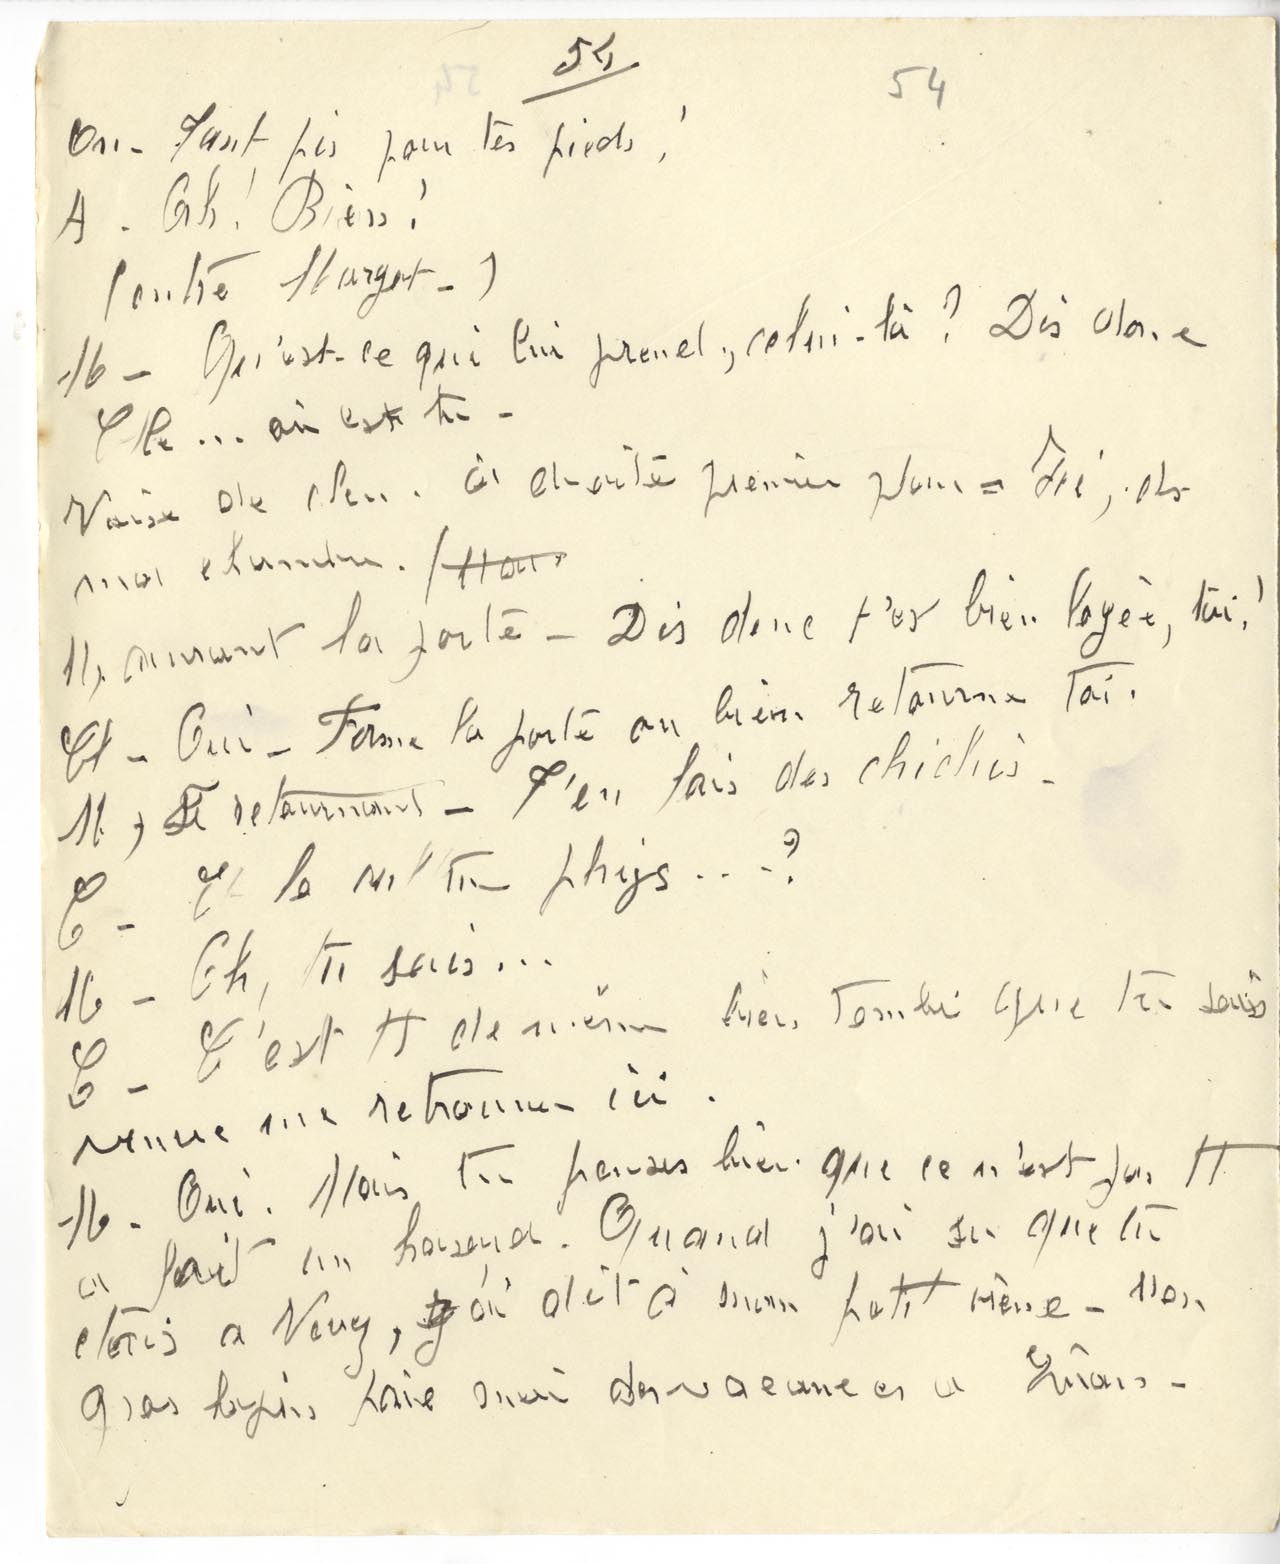 54 54
On - Tant pis pour tes pieds!
A. Ah! Bien!
(entre Margot-)
M - Qu'est-ce qui lui prend, celui-là? Dis donc
où es tu -
Voix de . à droite premier plan = Ici, ds
ma chambre.
M, ouvrant la porte - Dis donc t'es bien logée, toi!
Cl - Oui - Ferme la porte ou bien retourne toi.
M, se retournant - T'en fais des chichis -
C - Et le ...?
M - Oh, tu sais...
C - C'est tt de même bien tombé que tu sois
venue me retrouver ici.
M - Oui. Mais tu penses bien que ce n'est pas tt
a fait un hasard. Quand j'ai su que tu
etais a , j'ai dit à mon petit - Mon
gros lapin paie moi des vacances a -